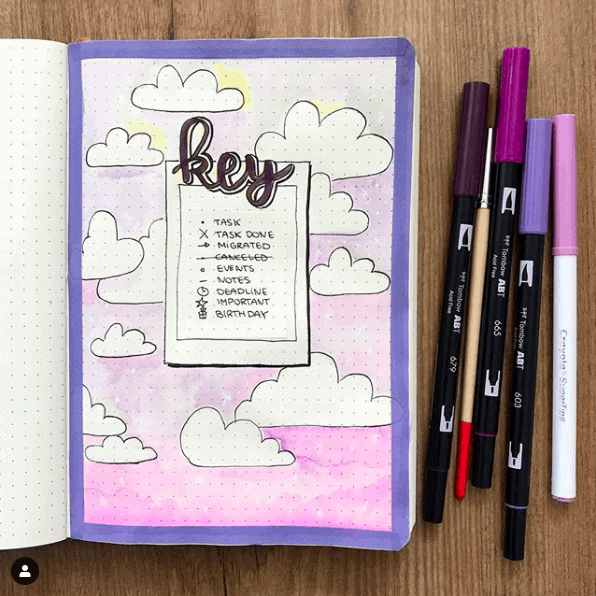 key
• TASK
X TASK DONE
→ MIGRATED
CANCELED
○ EVENTS
– NOTES
DEADLINE
☆ IMPORTANT
BIRTHDAY
Tombow ABT
Acid Free
679
Tombow ABT
Acid Free
665
Tombow ABT
Acid Free
603
Crayola Supertips